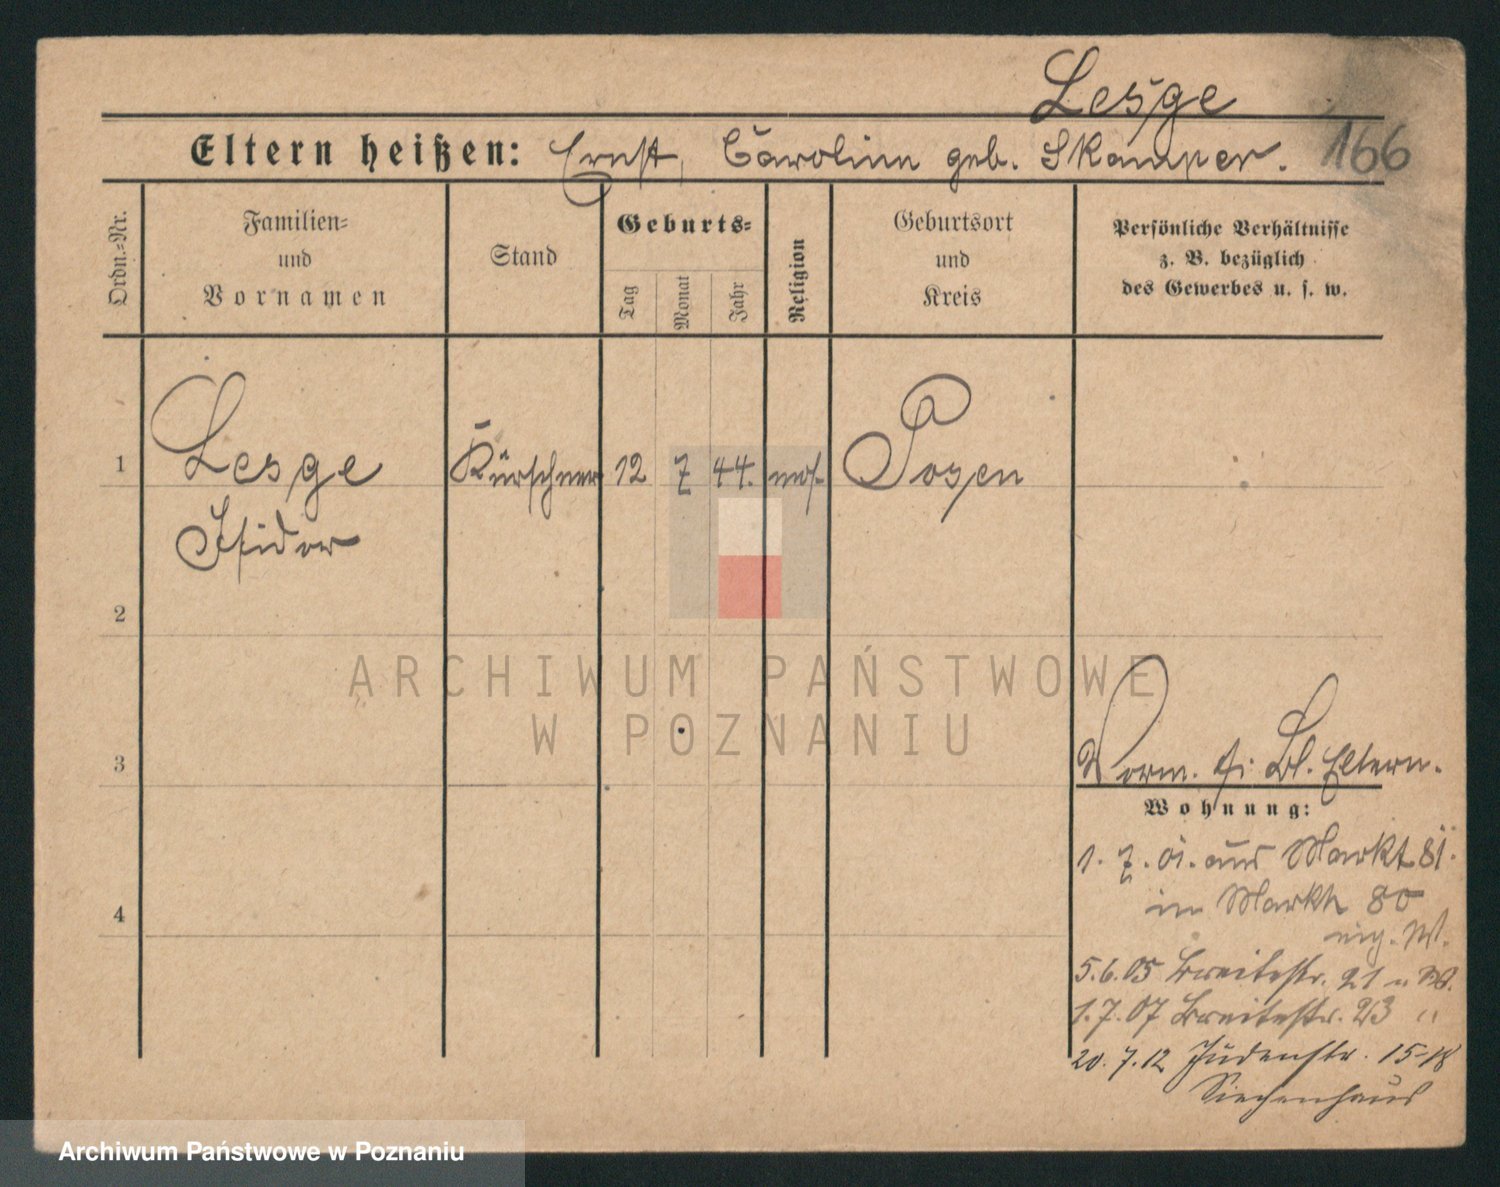 Lesge
Eltern heißen: Ernst, Carolina geb. Skamper.
166
Ordn.-Nr.
Familien-
und
Vornamen
Stand
Geburts-
Tag
Monat
Jahr
Religion
Geburtsort
und
Kreis
Persönliche Verhältnisse
z. B. bezüglich
des Gewerbes u. s. w.
1 Lesge Kürschner 12 7 44. mos. Posen
Isidor
2
3
4
ARCHIWUM PAŃSTWOWE
W POZNANIU
Vorm. Bl. Eltern.
Wohnung:
1. 7. 01. aus Markt 81.
in Markt 80
eig. W.
5.6.05 Breitestr. 21 " W.
1.7.07 Breitestr. 23 "
20. 7. 12 Judenstr. 15-18
Siechenhaus
Archiwum Państwowe w Poznaniu